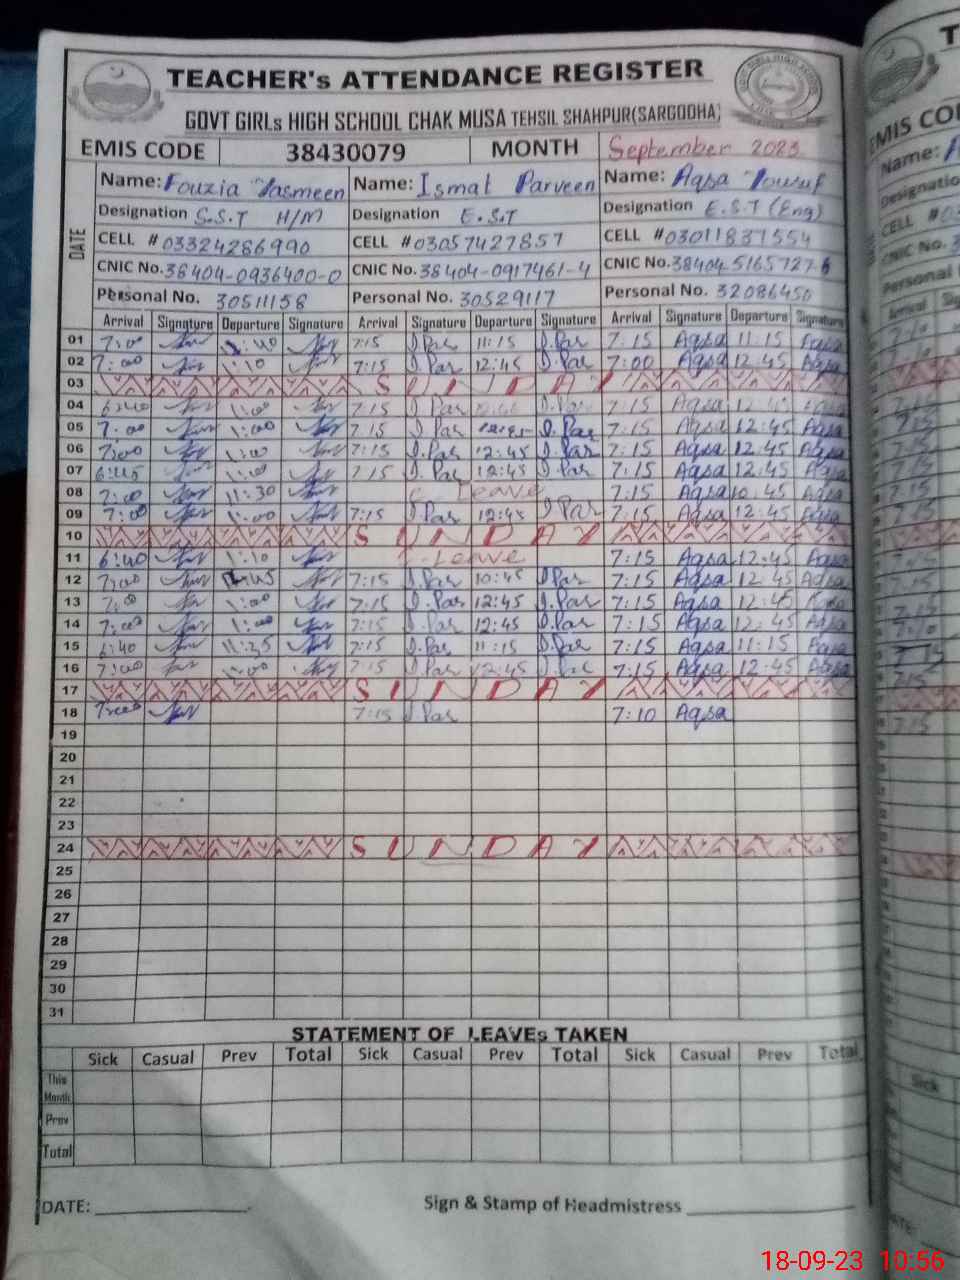 TEACHER's ATTENDANCE REGISTER
GOVT GIRLs HIGH SCHOOL CHAK MUSA TEHSIL SHAHPUR(SARGODHA)
EMIS CODE 38430079 MONTH September 2023
DATE
Name: Fouzia Yasmeen Name: Ismat Parveen Name: Aqsa Yousuf
Designation S.S.T H/M Designation E.S.T Designation E.S.T (Eng)
CELL #03324286990 CELL #03057427857 CELL #03011831554
CNIC No. 38404-0936400-0 CNIC No. 38404-0917461-4 CNIC No. 38404-5165727-6
Personal No. 30511158 Personal No. 30529117 Personal No. 32086450
Arrival Signature Departure Signature Arrival Signature Departure Signature Arrival Signature Departure Signature
01 7:00 7:15 I.Par 11:15 I.Par 7:15 Aqsa 11:15 Aqsa
02 7:00 1:10 7:15 I.Par 12:45 I.Par 7:00 Aqsa 12:45 Aqsa
03 SUNDAY
04 6:40 1:00 7:15 I.Par I.Par 7:15 Aqsa 12:45 Aqsa
05 7:00 1:00 7:15 I.Par I.Par 7:15 Aqsa 12:45 Aqsa
06 7:00 1:00 7:15 I.Par 12:45 I.Par 7:15 Aqsa 12:45 Aqsa
07 6:45 1:00 7:15 I.Par 12:45 I.Par 7:15 Aqsa 12:45 Aqsa
08 7:00 11:30 Leave 7:15 Aqsa 10:45 Aqsa
09 7:00 1:00 7:15 I.Par 12:45 I.Par 7:15 Aqsa 12:45 Aqsa
10 SUNDAY
11 6:40 1:10 Leave 7:15 Aqsa 12:45 Aqsa
12 7:00 7:15 I.Par 10:45 I.Par 7:15 Aqsa 12:45 Aqsa
13 7:00 1:00 7:15 I.Par 12:45 I.Par 7:15 Aqsa 12:45 Aqsa
14 7:00 1:00 7:15 I.Par 12:45 I.Par 7:15 Aqsa 12:45 Aqsa
15 6:40 11:25 7:15 I.Par 11:15 I.Par 7:15 Aqsa 11:15 Aqsa
16 7:00 1:00 7:15 I.Par 12:45 I.Par 7:15 Aqsa 12:45 Aqsa
17 SUNDAY
18 7:00 7:15 I.Par 7:10 Aqsa
19
20
21
22
23
24 SUNDAY
25
26
27
28
29
30
31
STATEMENT OF LEAVEs TAKEN
Sick Casual Prev Total Sick Casual Prev Total Sick Casual Prev Total
This Month
Prev
Total
DATE: Sign & Stamp of Headmistress
18-09-23 10:56